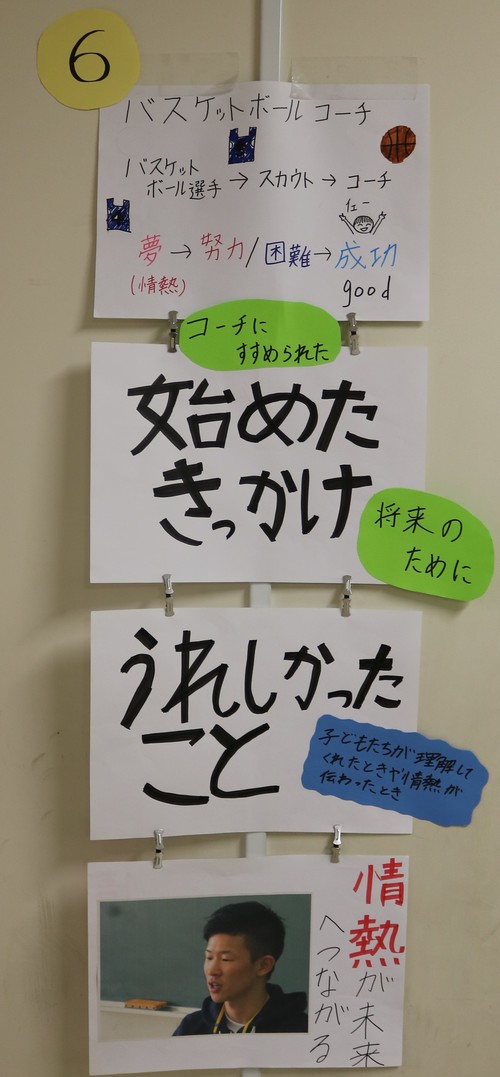 6
バスケットボールコーチ
バスケット
ボール選手→スカウト→コーチ
イェー
夢→努力/困難→成功
(情熱)
good
コーチに
すすめられた
始めた
きっかけ
将来の
ために
うれしかった
こと
子どもたちが理解して
くれたときや情熱が
伝わったとき
情熱が未来
へつながる